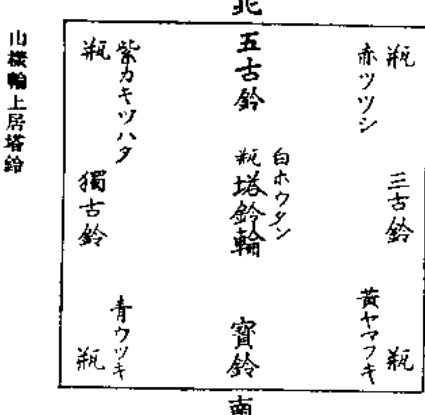 北
瓶
赤ツツシ
三古鈴
黄ヤマフキ
瓶
五古鈴
白ホウタン
瓶
塔鈴輪
寳鈴
瓶
紫カキツハタ
獨古鈴
青ウツキ
瓶
南
山樣輪上居塔鈴